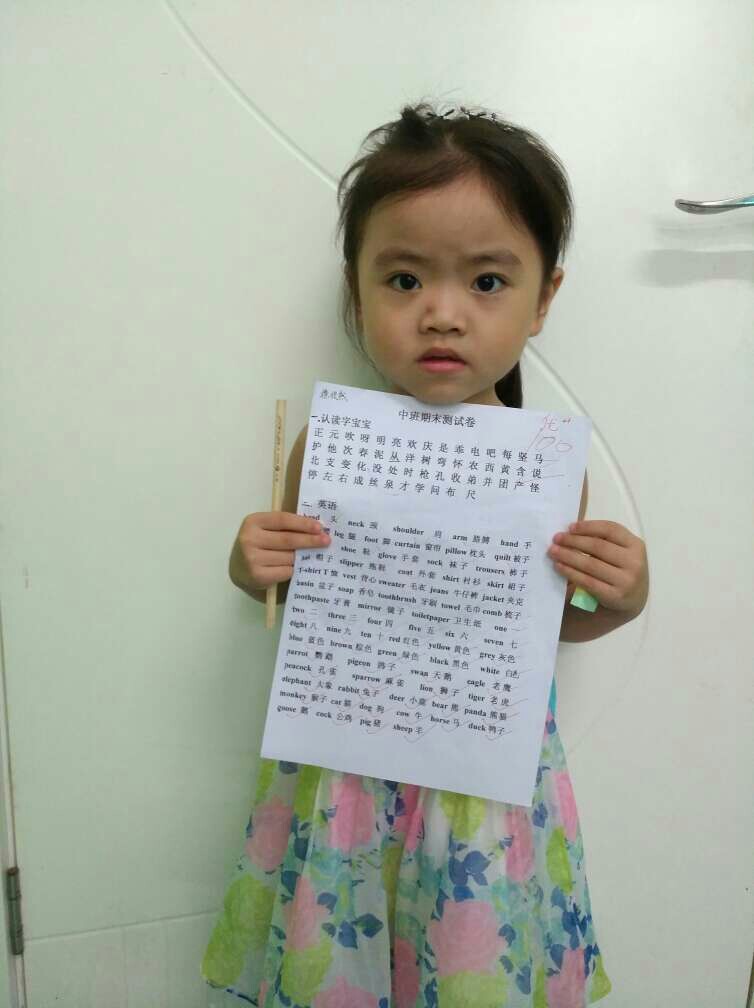 中班期末测试卷
优
100
一.认读字宝宝
正 元 吹 呀 明 亮 欢 庆 是 乖 电 吧 每 坚 马
护 他 次 春 泥 丛 洋 树 弯 怀 农 西 黄 含 说
北 支 变 化 没 处 时 枪 孔 收 弟 并 团 产 怪
停 左 右 成 丝 泉 才 学 问 布 尺
二. 英语
head 头 neck 颈 shoulder 肩 arm 胳膊 hand 手
leg 腿 foot 脚 curtain 窗帘 pillow 枕头 quilt 被子
shoe 鞋 glove 手套 sock 袜子 trousers 裤子
hat 帽子 slipper 拖鞋 coat 外套 shirt 衬衫 skirt 裙子
T-shirt T 恤 vest 背心 sweater 毛衣 jeans 牛仔裤 jacket 夹克
basin 盆子 soap 香皂 toothbrush 牙刷 towel 毛巾 comb 梳子
toothpaste 牙膏 mirror 镜子 toiletpaper 卫生纸 one 一
two 二 three 三 four 四 five 五 six 六 seven 七
eight 八 nine 九 ten 十 red 红色 yellow 黄色 grey 灰色
blue 蓝色 brown 棕色 green 绿色 black 黑色 white 白色
parrot 鹦鹉 pigeon 鸽子 swan 天鹅 eagle 老鹰
peacock 孔雀 sparrow 麻雀 lion 狮子 tiger 老虎
elephant 大象 rabbit 兔子 deer 小鹿 bear 熊 panda 熊猫
monkey 猴子 cat 猫 dog 狗 cow 牛 horse 马 duck 鸭子
goose 鹅 cock 公鸡 pig 猪 sheep 羊